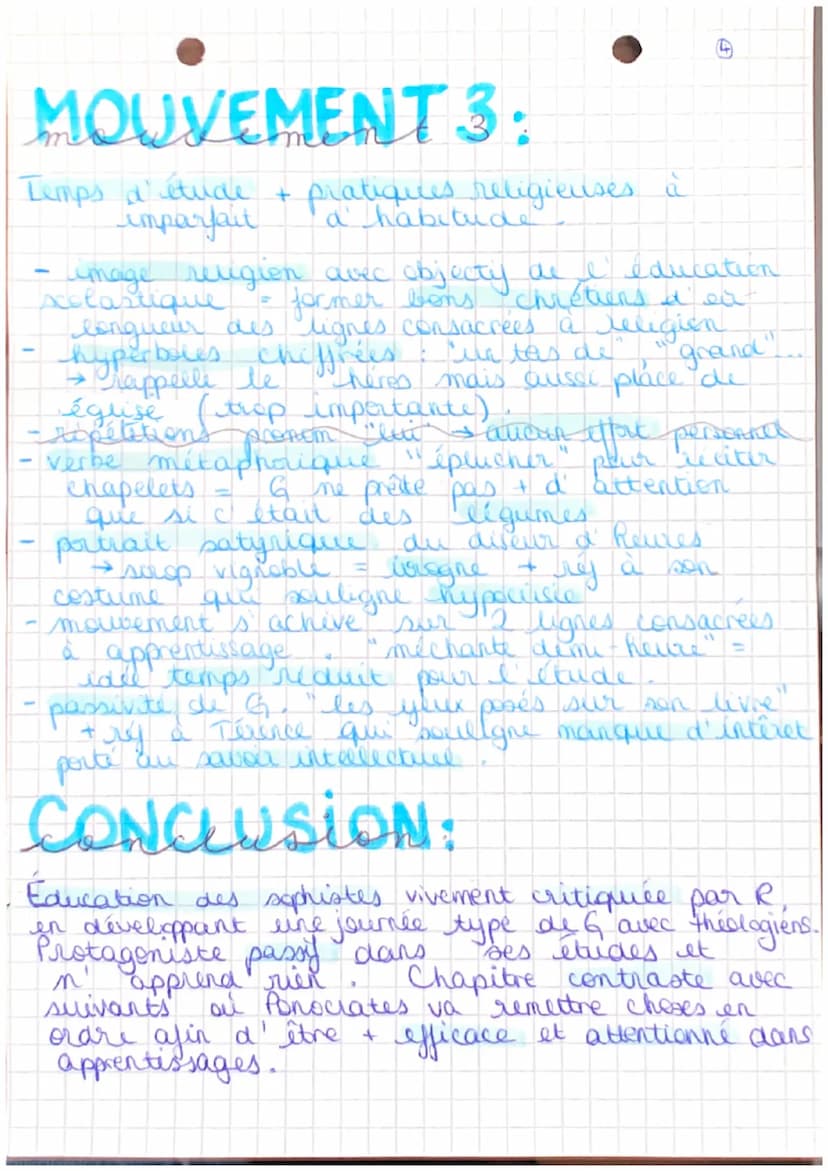 4
MOUVEMENT 3 :
mouvement 3 :
Temps d'étude + pratiques religieuses à
imparfait d'habitude.
- image religion avec objectif de l'éducation
scolastique = former bons chrétiens d'où
longueur des lignes consacrées à religion
- hyperboles chiffrées : "un tas de", "grand"...
→ rappelle le héros mais aussi place de
église (trop importante).
- répétitions pronom "lui" → aucun effort personnel
- verbe métaphorique "éplucher" pour réciter
chapelets = G ne prête pas + d'attention
que si c'était des légumes
- portrait satyrique du diseur d'heures
→ sirop vignoble = ivrogne + réf à son
costume qui souligne hypocrisie
- mouvement s'achève sur 2 lignes consacrées
à apprentissage. "méchante demi-heure" =
idée temps réduit pour l'étude.
- passivité de G. "les yeux posés sur son livre"
+ réf à Térence qui souligne manque d'intérêt
porté au savoir intellectuel.
CONCLUSION :
conclusion :
Éducation des sophistes vivement critiquée par R,
en développant une journée type de G avec théologiens.
Protagoniste passif dans ses études et
n'apprend rien. Chapitre contraste avec
suivants où Ponocrates va remettre choses en
ordre afin d'être + efficace et attentionné dans
apprentissages.